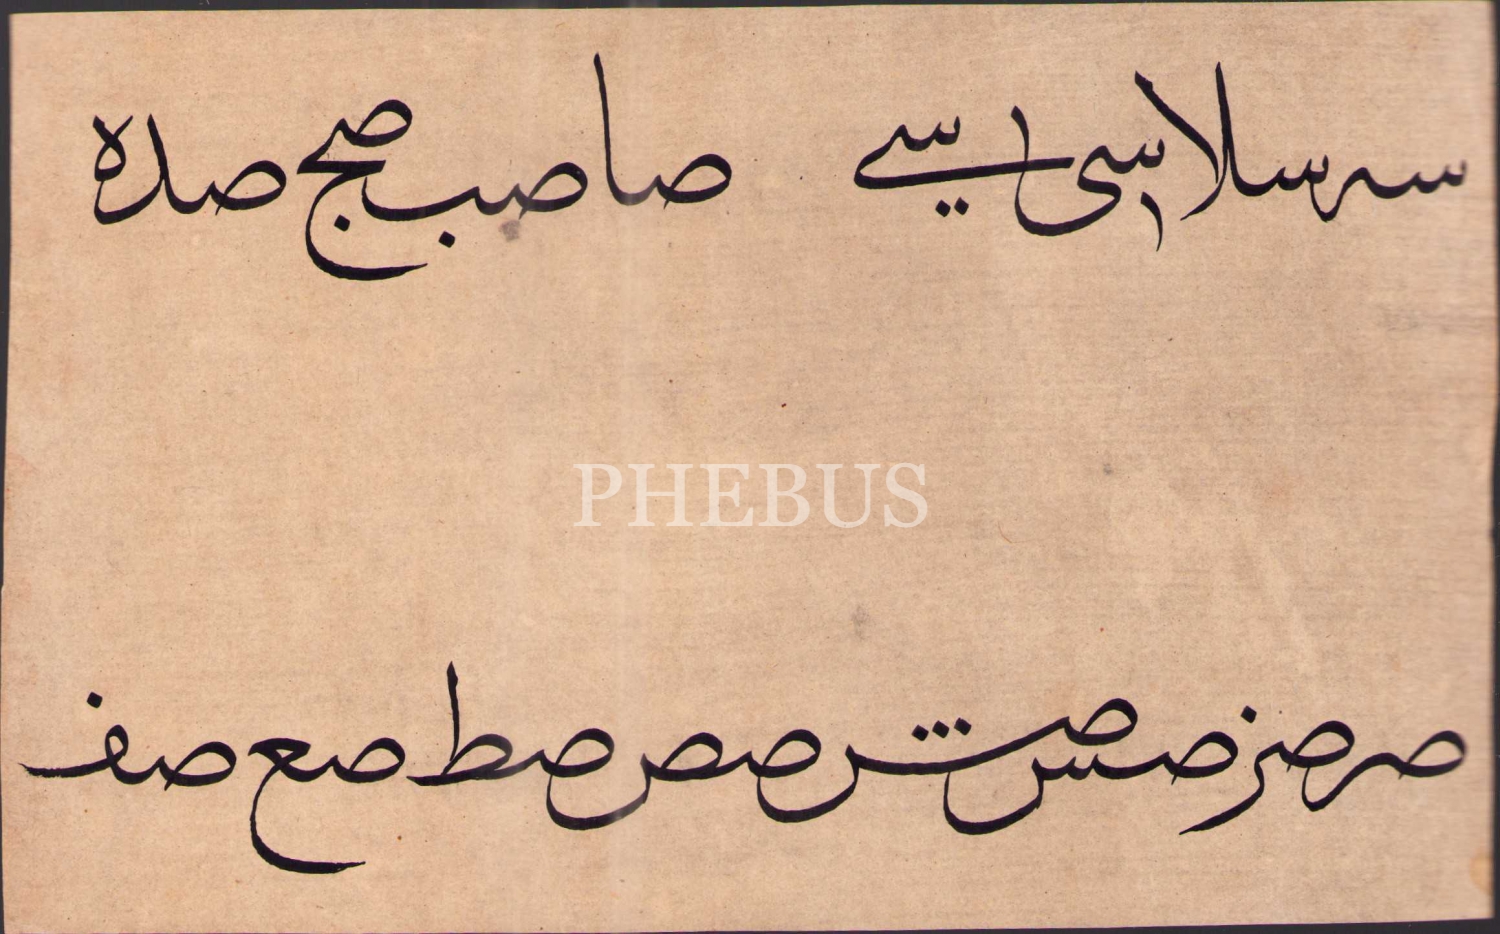 سه سلا سى سے صا صب صج صد ه
PHEBUS
صر صز صس صش صص صط صع صف